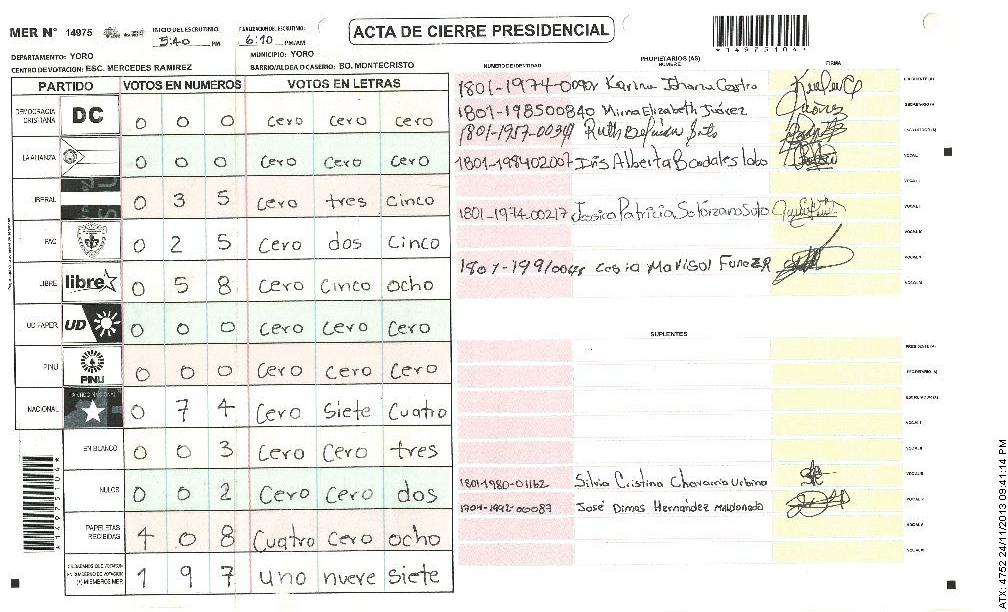 MER N° 14975
INICIO DEL ESCRUTINIO: 5:40 PM
FINALIZACION DEL ESCRUTINIO: 6:10 PM/AM
ACTA DE CIERRE PRESIDENCIAL
*1497510 4*
DEPARTAMENTO: YORO
MUNICIPIO: YORO
CENTRO DE VOTACION: ESC. MERCEDES RAMIREZ
BARRIO/ALDEA O CASERIO: BO. MONTECRISTO
PARTIDO VOTOS EN NUMEROS VOTOS EN LETRAS
DEMOCRACIA CRISTIANA DC 0 0 0 cero cero cero
LA ALIANZA 0 0 0 cero cero cero
LIBERAL 0 3 5 cero tres cinco
PAC 0 2 5 cero dos cinco
LIBRE libre 0 5 8 cero cinco ocho
UD FAPER UD 0 0 0 cero cero cero
PINU PINU 0 0 0 cero cero cero
NACIONAL 0 7 4 cero siete cuatro
EN BLANCO 0 0 3 cero cero tres
NULOS 0 0 2 cero cero dos
PAPELETAS RECIBIDAS 4 0 8 cuatro cero ocho
CIUDADANOS QUE VOTARON EN CUADERNO DE VOTACION (+) MIEMBROS MER 1 9 7 uno nueve siete
PROPIETARIOS (AS)
NUMERO DE IDENTIDAD NOMBRE FIRMA
Karina Johana Castro
1801-198500840 Mirna Elizabeth Juárez
Ruth
1801-198402007 Iris Alberta lobo
1801-1974-00217 Jessica Patricia Solorzano Soto
Marisol Funez R
SUPLENTES
PRESIDENTE (A)
SECRETARIO (A)
ESCRUTADOR (A)
VOCAL I
1801-1980-01162 Silvia Cristina Chavarria Urbina
1704-1992-00087 José Dimas Hernández Maldonado
ATX: 4752 24/11/2013 09:41:14 PM